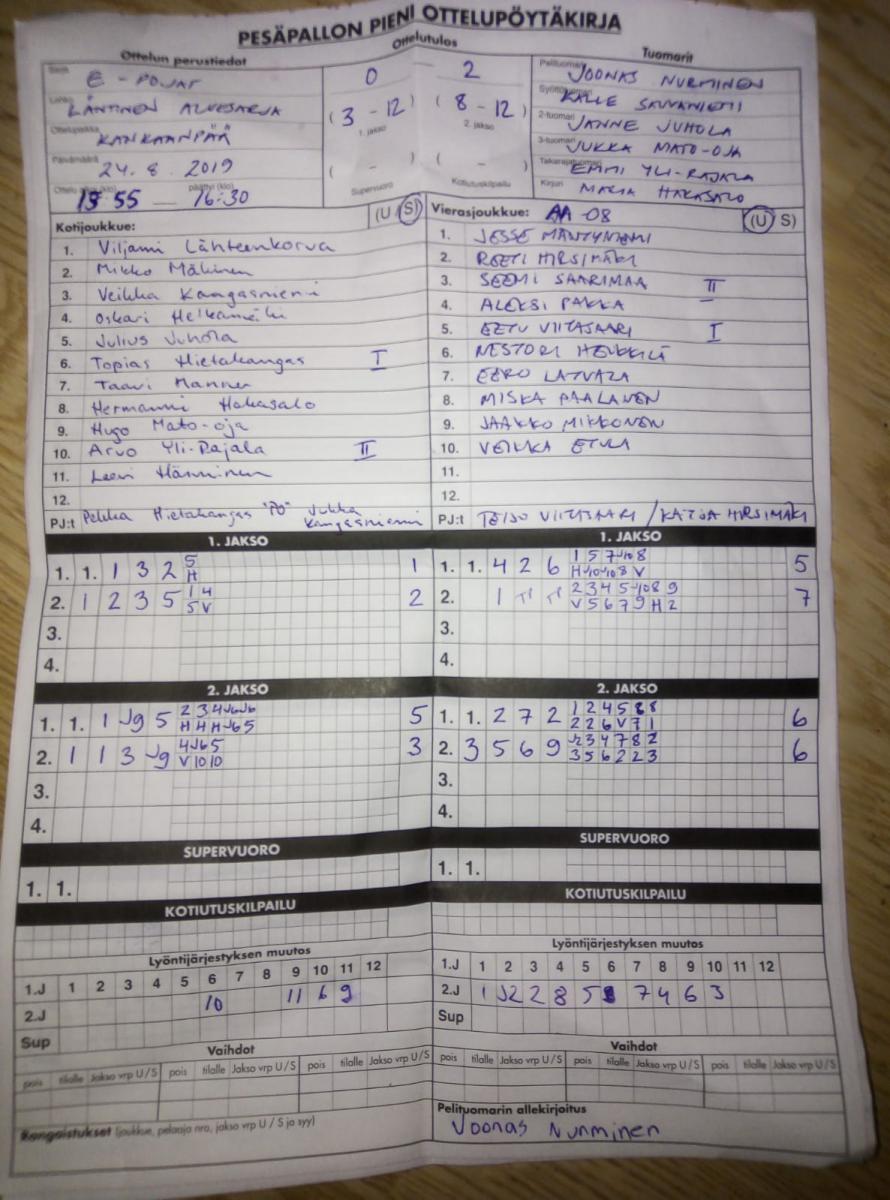 PESÄPALLON PIENI OTTELUPÖYTÄKIRJA
Ottelun perustiedot Ottelutulos Tuomarit
E - POJAT 0 - 2 JOONAS NURMINEN
LÄNTINEN ALUESARJA (3 - 12) (8 - 12) KALLE SAUVANIEMI
1. jakso 2. jakso
Ottelupaikka KANKAANPÄÄ 2-tuomari JANNE JUHOLA
Päivämäärä 24.8.2019 ( - ) ( - ) 3-tuomari JUKKA MATO-OJA
Takarajatuomari EMMI YLI-RAJALA
15 55 — päättyi (klo) 16:30 Supervuoro Kotiutuskilpailu Kirjuri MARIA HAKASALO
Kotijoukkue: (U S) Vierasjoukkue: AA-08 (U S)
1. Viljami Lähteenkorva 1. JESSE MÄNTYNIEMI
2. Mikko Mäkinen 2. REETI HIRSIMÄKI
3. Veikka Kangasniemi 3. SEEMI SAARIMAA II
4. Oskari Helkamäki 4. ALEKSI PAKKA
5. Julius Juhola 5. EETU VIITASAARI I
6. Topias Hietakangas I 6. NESTORI HENKKILÄ
7. Taavi Manner 7. EERO LATVALA
8. Hermanni Hakasalo 8. MISKA PAALANEN
9. Hugo Mato-oja 9. JAAKKO MIKKONEN
10. Arvo Yli-Rajala II 10. VEIKKA ETULA
11. Leevi Hänninen 11.
12. 12.
PJ:t Pekka Hietakangas "PO" Jukka Kangasniemi PJ:t TEIJO VIITASAARI / KATJA HIRSIMÄKI
1. JAKSO 1. JAKSO
1. 1. 1 3 2 5 H 1 1. 1. 4 2 6 5
2. 1 2 3 5 1 4 5 V 2 2. 1 7
3. 3.
4. 4.
2. JAKSO 2. JAKSO
1. 1. 1 J9 5 5 1. 1. 2 7 2 1 2 4 5 8 8 2 2 6 V 7 1 6
2. 1 1 3 J9 4 J6 5 V 10 10 3 2. 3 5 6 9 J2 3 4 7 8 2 3 5 6 2 2 3 6
3. 3.
4. 4.
SUPERVUORO SUPERVUORO
1. 1. 1. 1.
KOTIUTUSKILPAILU KOTIUTUSKILPAILU
Lyöntijärjestyksen muutos Lyöntijärjestyksen muutos
1.J 1 2 3 4 5 6 7 8 9 10 11 12 1.J 1 2 3 4 5 6 7 8 9 10 11 12
2.J 10 11 6 9 2.J 1 J2 2 8 5 7 4 6 3
Sup Sup
Vaihdot Vaihdot
pois tilalle Jakso vrp U/S pois tilalle Jakso vrp U/S pois tilalle Jakso vrp U/S pois tilalle Jakso vrp U/S pois tilalle Jakso vrp U/S pois tilalle Jakso vrp U/S
Rangaistukset (joukkue, pelaaja nro, jakso vrp U / S ja syy) Pelituomarin allekirjoitus
Joonas Nurminen